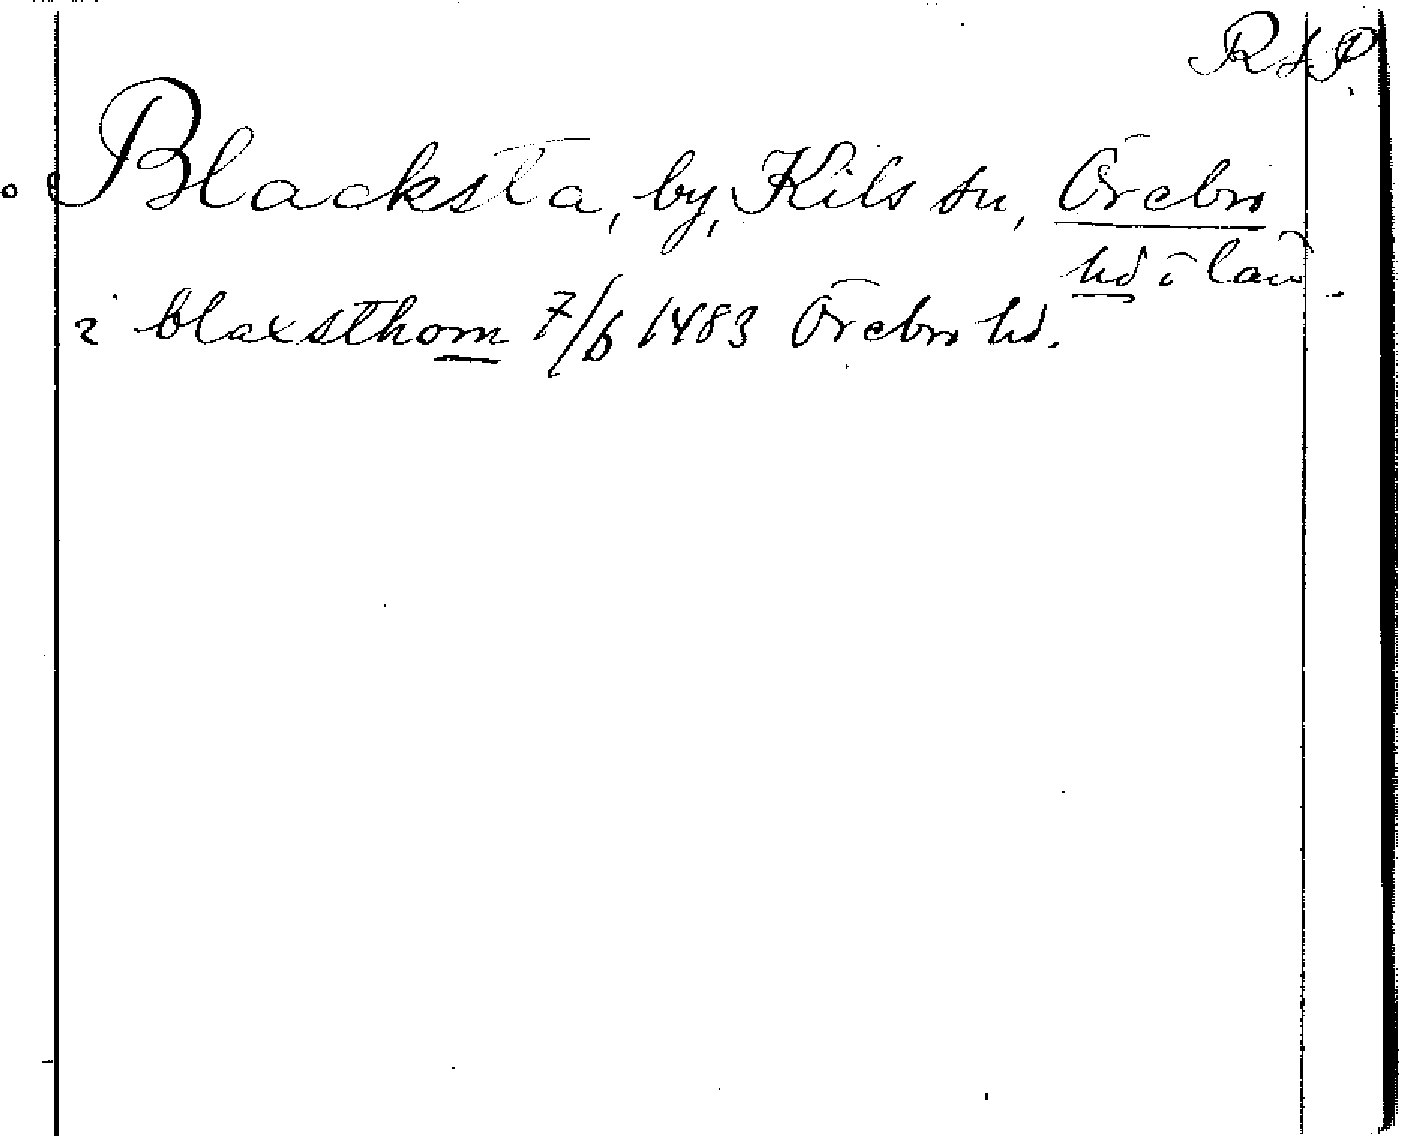 RAP
Blacksta, by, Kils sn, Örebro
hd o län.
i blaxsthom 7/6 1483 Örebro hd.